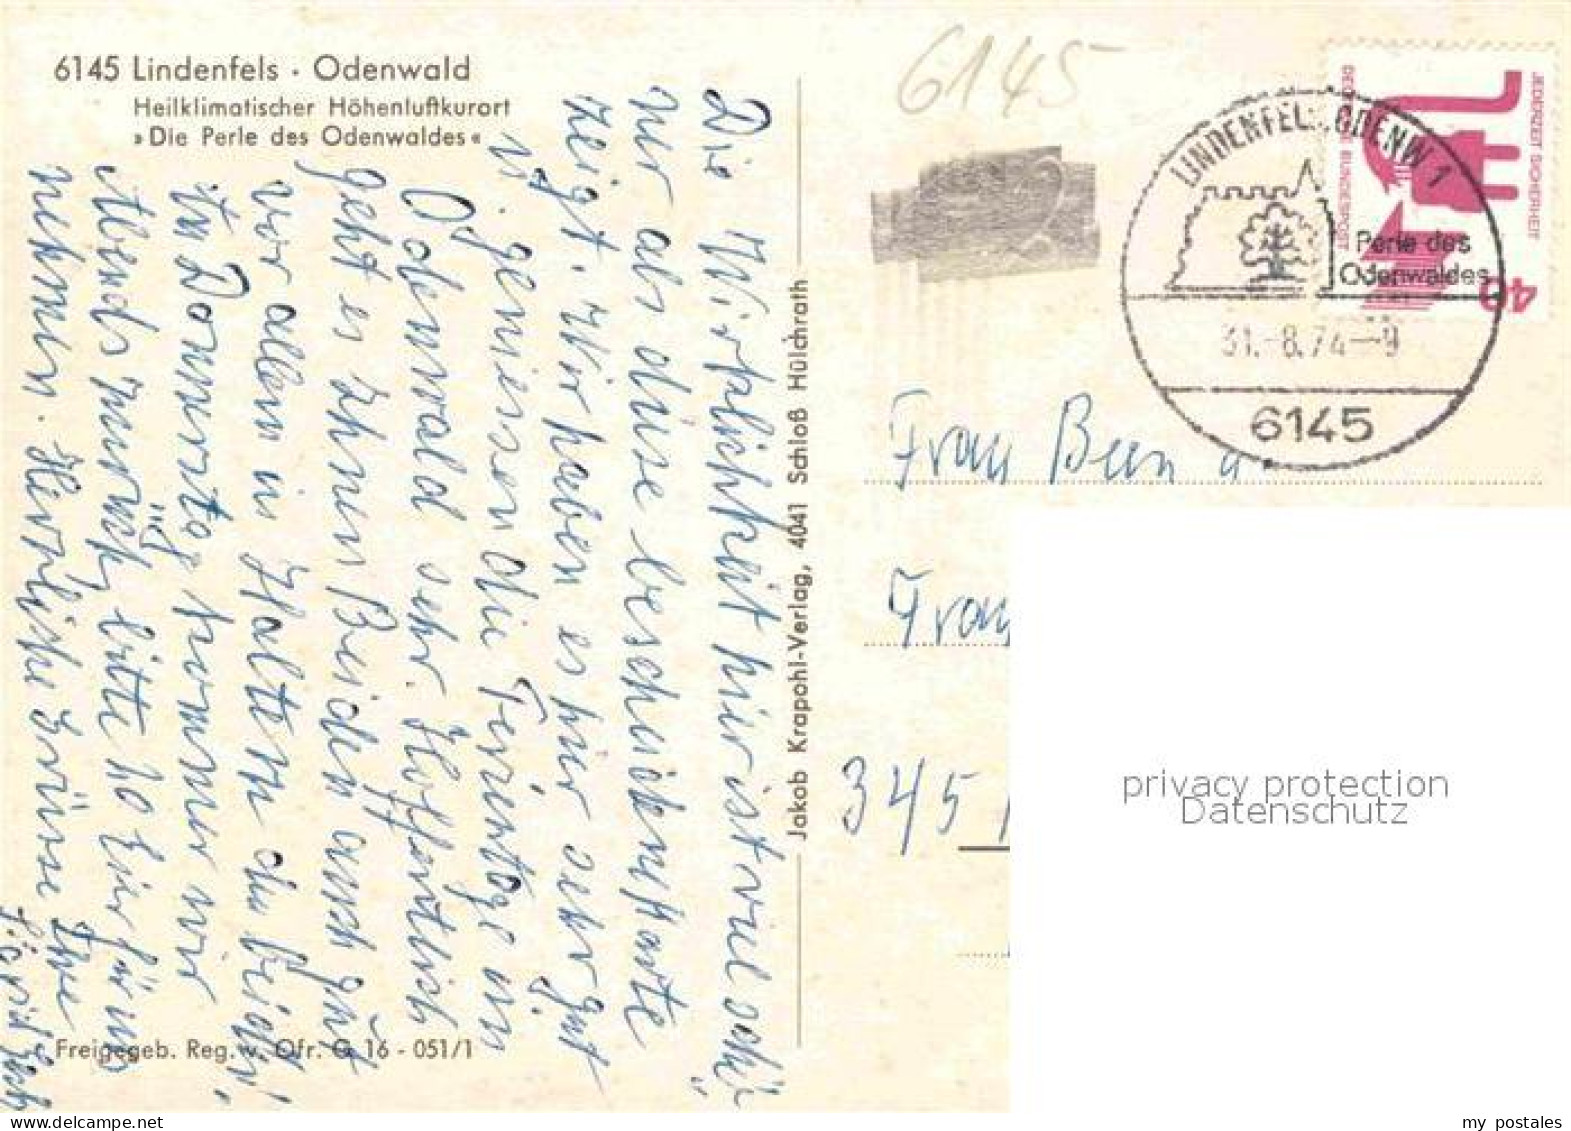 6145 Lindenfels · Odenwald
Heilklimatischer Höhenluftkurort
»Die Perle des Odenwaldes«
Die Wirklichkeit hier ist viel schö-
ner als diese bescheidene Karte
zeigt. Wir haben es hier sehr gut
u. geniessen die Ferientage im
Odenwald sehr. Hoffentlich
geht es Ihnen Beiden auch gut
vor allem in
Am Donnerstag kommen wir
Abends zurück, bitte 10 Eier für uns
nehmen. Herzliche Grüsse Ihre
Freigegeb. Reg. v. Ofr. G 16 - 051/1
Jakob Krapohl-Verlag, 4041 Schloß Hülchrath
6145
DEUTSCHE BUNDESPOST
JEDERZEIT SICHERHEIT
40
LINDENFELS, ODENW 1
Perle des
Odenwaldes
31.-8.74--9
6145
Frau
Frau
345
privacy protection
Datenschutz
www.delcampe.net
my_postales